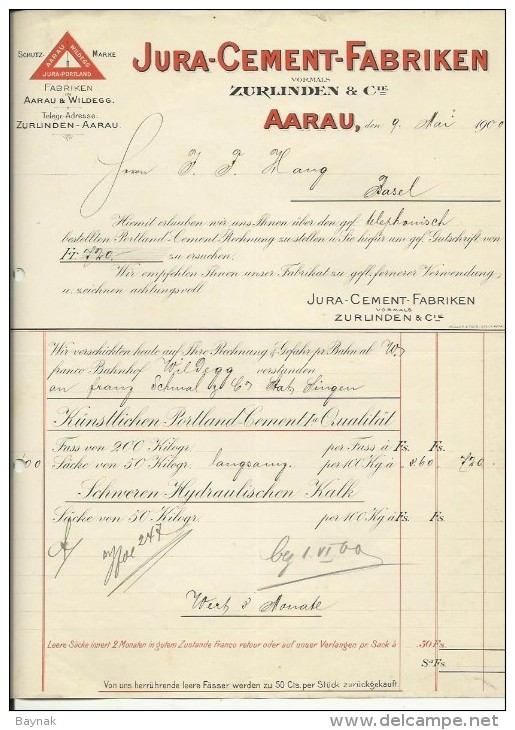 SCHUTZ-
MARKE
AARAU
WILDEGG
JURA-PORTLAND
FABRIKEN
IN
AARAU & WILDEGG.
Telegr.-Adresse:
ZURLINDEN-AARAU.
JURA-CEMENT-FABRIKEN
VORMALS
ZURLINDEN & CIE
AARAU, den 9. Mai 1900
Herrn J. F. Hang
Basel
Hiemit erlauben wir uns Ihnen über den ggf. telephonisch
bestellten Portland-Cement Rechnung zu stellen u. Sie hiefür um gef. Gutschrift von
Fr. 720.- zu ersuchen.
Wir empfehlen Ihnen unser Fabrikat zu gefl. fernerer Verwendung,
u. zeichnen achtungsvoll
JURA-CEMENT-FABRIKEN
VORMALS
ZURLINDEN & CIE
Wir verschickten heute auf Ihre Rechnung & Gefahr pr. Bahn ab W.
franco Bahnhof Wildegg verstanden
an Franz Schmal & Co Stat. Singen
Künstlichen Portland-Cement Ia Qualität
Fass von 200 Kilogr. per Fass à Fs. Fs.
Säcke von 50 Kilogr. langsamz. per 100 Kg. à „ 3.60 „ 720.-
Schweren Hydraulischen Kalk
Säcke von 50 Kilogr. per 100 Kg à Fs. Fs.
247
1. VI 00
Wert 3 Monate
Leere Säcke innert 2 Monaten in gutem Zustande franco retour oder auf unser Verlangen pr. Sack à -.50 Fs.
Sa Fs.
Von uns herrührende leere Fässer werden zu 50 Cts. per Stück zurückgekauft.
Baynak
www.delcampe.net